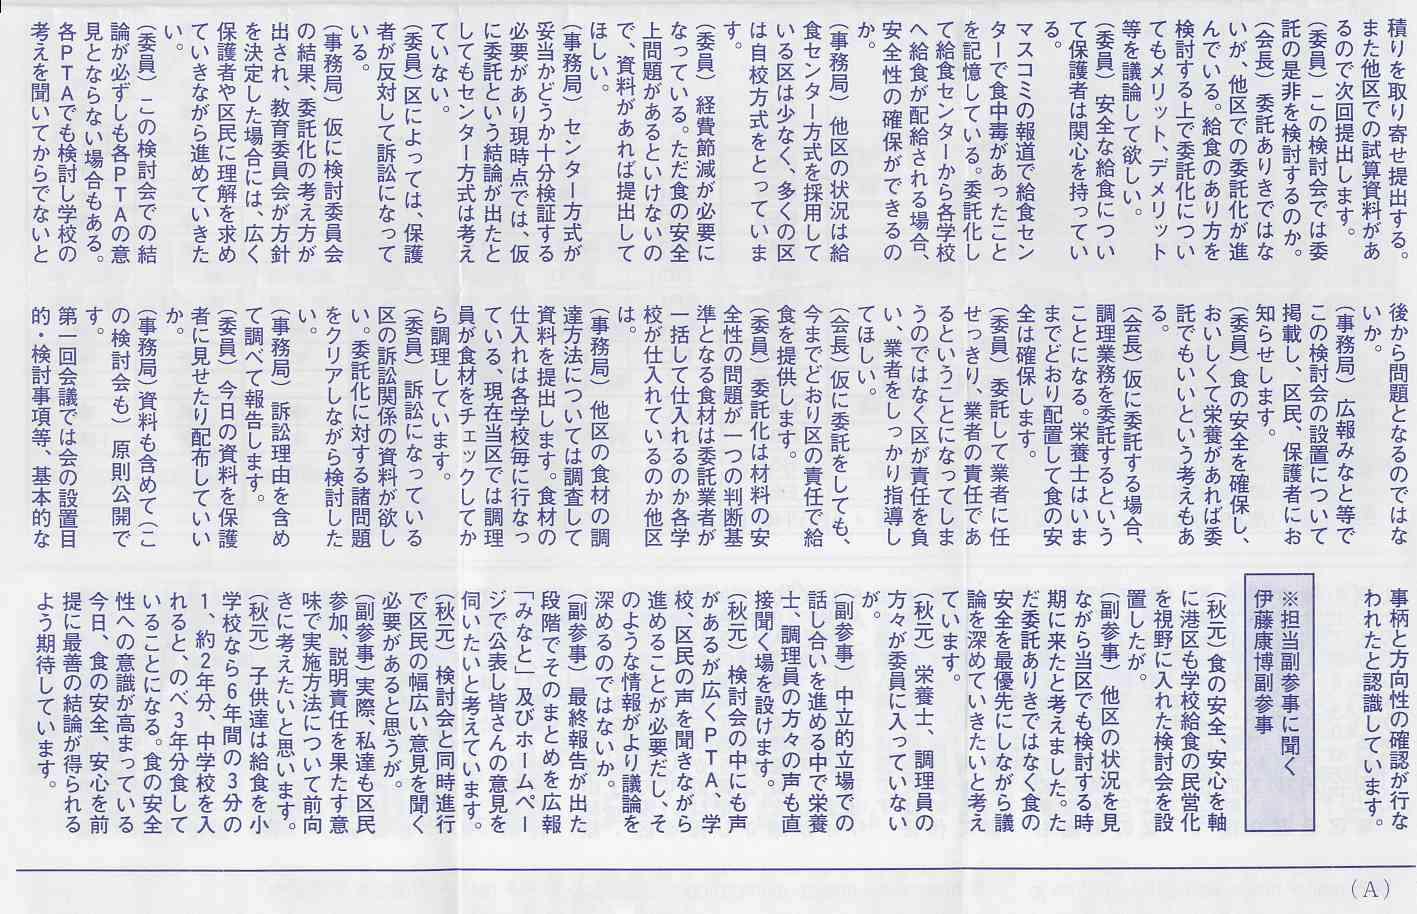 積りを取り寄せ提出する。
また他区での試算資料があ
るので次回提出します。
（委員）この検討会では委
託の是非を検討するのか。
（会長）委託ありきではな
いが、他区での委託化が進
んでいる。給食のあり方を
検討する上で委託化につい
てもメリット、デメリット
等を議論して欲しい。
（委員）安全な給食につい
て保護者は関心を持ってい
る。
マスコミの報道で給食セン
ターで食中毒があったこと
を記憶している。委託化し
て給食センターから各学校
へ給食が配給される場合、
安全性の確保ができるの
か。
（事務局）他区の状況は給
食センター方式を採用して
いる区は少なく、多くの区
は自校方式をとっていま
す。
（委員）経費節減が必要に
なっている。ただ食の安全
上問題があるといけないの
で、資料があれば提出して
ほしい。
（事務局）センター方式が
妥当かどうか十分検証する
必要があり現時点では、仮
に委託という結論が出たと
してもセンター方式は考え
ていない。
（委員）区によっては、保護
者が反対して訴訟になって
いる。
（事務局）仮に検討委員会
の結果、委託化の考え方が
出され、教育委員会が方針
を決定した場合には、広く
保護者や区民に理解を求め
ていきながら進めていきた
い。
（委員）この検討会での結
論が必ずしも各ＰＴＡの意
見とならない場合もある。
各ＰＴＡでも検討し学校の
考えを聞いてからでないと
後から問題となるのではな
いか。
（事務局）広報みなと等で
この検討会の設置について
掲載し、区民、保護者にお
知らせします。
（委員）食の安全を確保し、
おいしくて栄養があれば委
託でもいいという考えもあ
る。
（会長）仮に委託する場合、
調理業務を委託するという
ことになる。栄養士はいま
までどおり配置して食の安
全は確保します。
（委員）委託して業者に任
せっきり、業者の責任であ
るということになってしま
うのではなく区が責任を負
い、業者をしっかり指導し
てほしい。
（会長）仮に委託をしても、
今までどおり区の責任で給
食を提供します。
（委員）委託化は材料の安
全性の問題が一つの判断基
準となる食材は委託業者が
一括して仕入れるのか各学
校が仕入れているのか他区
は。
（事務局）他区の食材の調
達方法については調査して
資料を提出します。食材の
仕入れは各学校毎に行なっ
ている、現在当区では調理
員が食材をチェックしてか
ら調理しています。
（委員）訴訟になっている
区の訴訟関係の資料が欲し
い。委託化に対する諸問題
をクリアしながら検討した
い。
（事務局）訴訟理由を含め
て調べて報告します。
（委員）今日の資料を保護
者に見せたり配布していい
か。
（事務局）資料も含めて（こ
の検討会も）原則公開で
す。
第一回会議では会の設置目
的・検討事項等、基本的な
事柄と方向性の確認が行な
われたと認識しています。
※担当副参事に聞く
伊藤康博副参事
（秋元）食の安全、安心を軸
に港区も学校給食の民営化
を視野に入れた検討会を設
置したが。
（副参事）他区の状況を見
ながら当区でも検討する時
期に来たと考えました。た
だ委託ありきではなく食の
安全を最優先にしながら議
論を深めていきたいと考え
ています。
（秋元）栄養士、調理員の
方々が委員に入っていない
が。
（副参事）中立的立場での
話し合いを進める中で栄養
士、調理員の方々の声も直
接聞く場を設けます。
（秋元）検討会の中にも声
があるが広くＰＴＡ、学
校、区民の声を聞きながら
進めることが必要だし、そ
のような情報がより議論を
深めるのではないか。
（副参事）最終報告が出た
段階でそのまとめを広報
「みなと」及びホームペー
ジで公表し皆さんの意見を
伺いたいと考えています。
（秋元）検討会と同時進行
で区民の幅広い意見を聞く
必要があると思うが。
（副参事）実際、私達も区民
参加、説明責任を果たす意
味で実施方法について前向
きに考えたいと思います。
（秋元）子供達は給食を小
学校なら６年間の３分の
１、約２年分、中学校を入
れると、のべ３年分食して
いることになる。食の安全
性への意識が高まっている
今日、食の安全、安心を前
提に最善の結論が得られる
よう期待しています。
（Ａ）